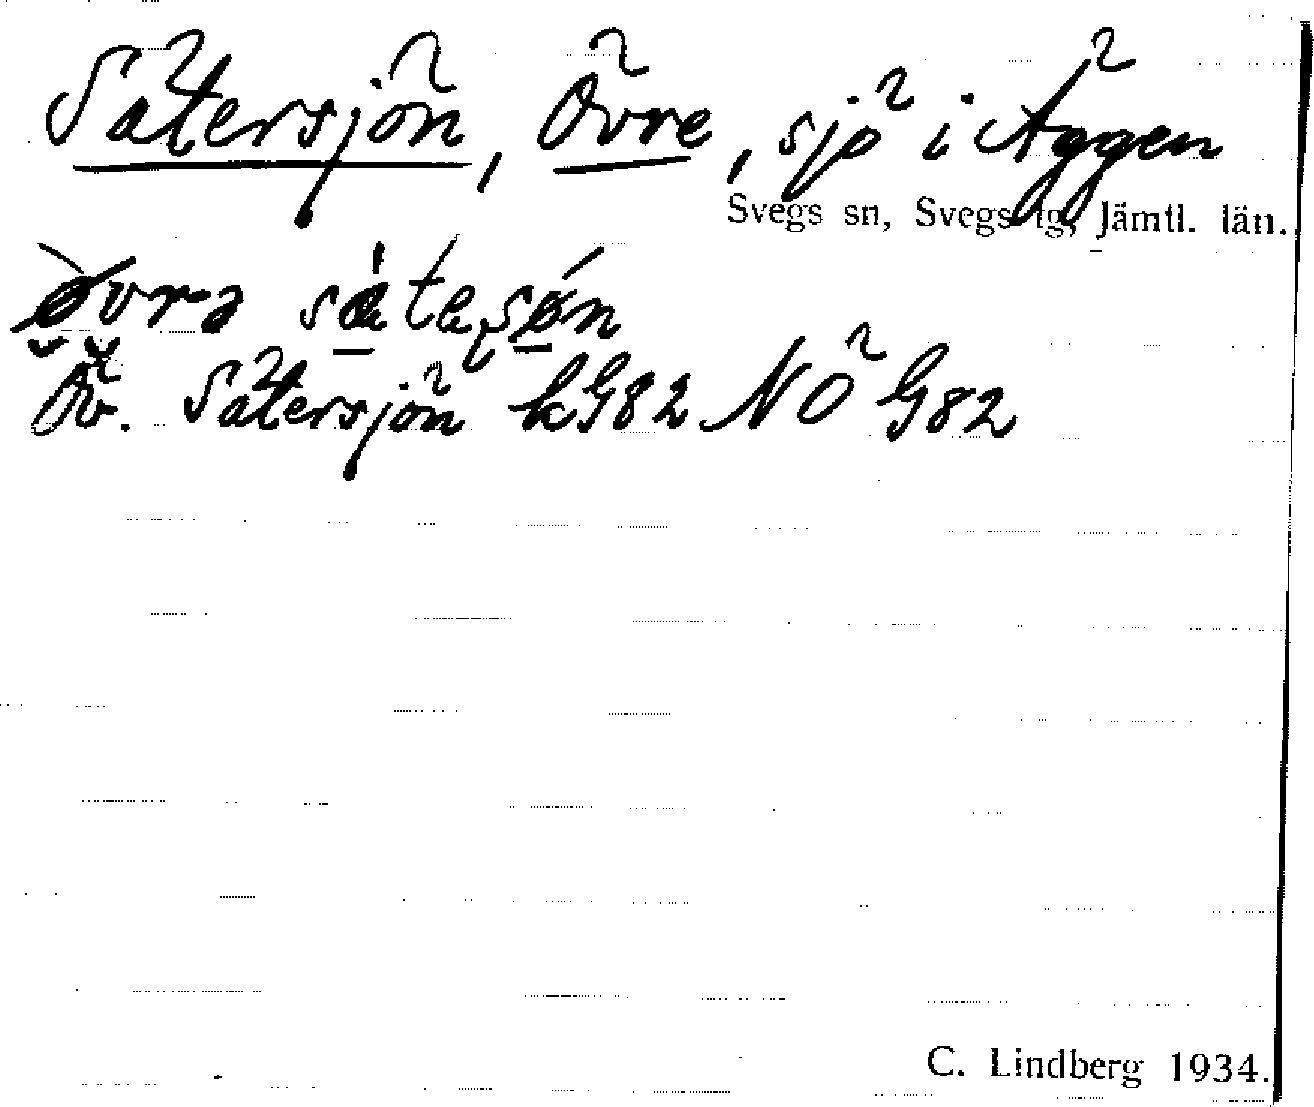 Sätersjön, Övre, sjö i Äggen
Svegs sn, Svegs tg, Jämtl. län.
Öv. Sätersjön kG82 NÖ G82
C. Lindberg 1934.